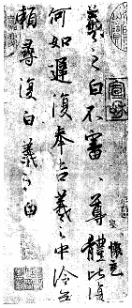 羲之白不審尊體比復
懷充
何如遲復奉告羲之中冷無
賴尋復白羲之白